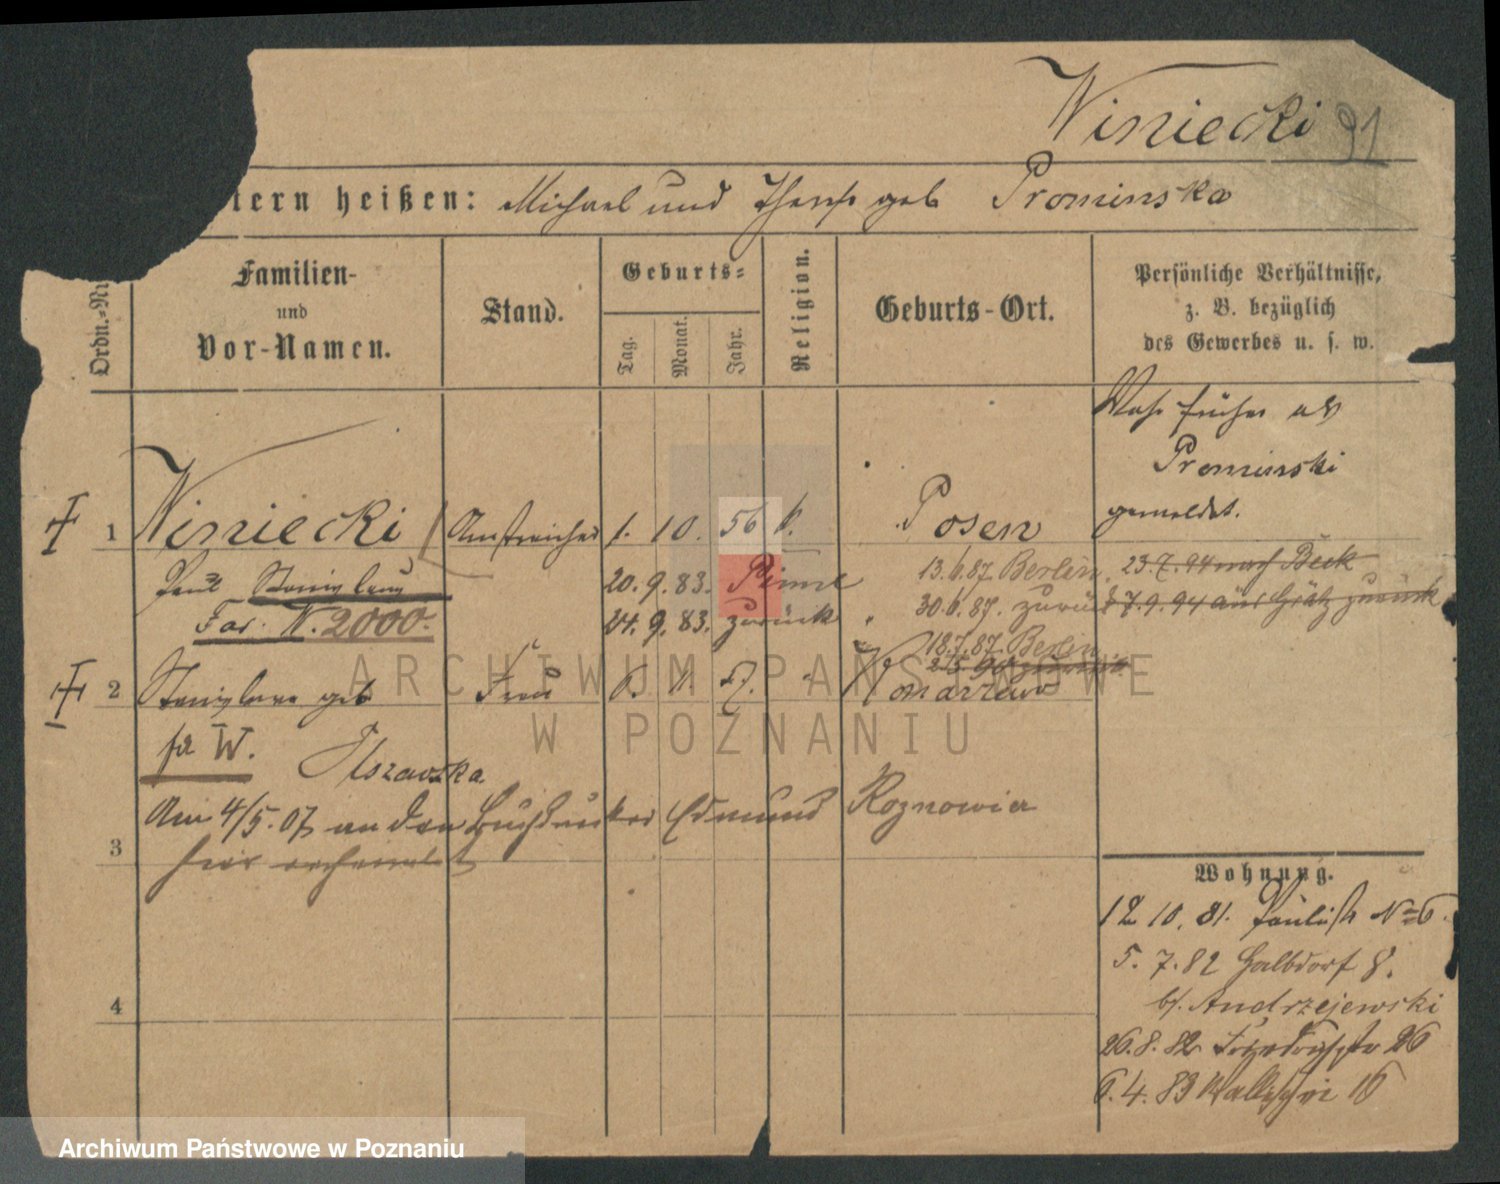 Winiecki 91
tern heißen: Michael und Therese geb Prominska
Ordn.=Nr
Familien-
und
Vor-Namen.
Stand.
Geburts=
Tag.
Monat.
Jahr.
Religion.
Geburts-Ort.
Persönliche Verhältnisse,
z. B. bezüglich
des Gewerbes u. s. w.
War früher als
Prominski
gemeldet.
1 Winiecki Anstreicher 1. 10. 56 k. Posen
Stanislaus
20. 9. 83. Pinne
13.6.87. Berlin
23.7.94 nach Beck
N. 2000.
24. 9. 83. zurück
30.6.87. zurück
7.9.94 aus Grätz zurück
18.7.87. Berlin
2 Stanislawa geb Frau
W.
Am 4/5.07 an den Buchdrucker Edmund Roznowicz
3 hier
4
Wohnung.
12 10. 81. Paulistr No 6.
5. 7. 82 Halbdorf 8.
b/. Andrzejewski
26. 8. 82 26
6. 4. 83 Wallischei 16
ARCHIWUM PAŃSTWOWE
W POZNANIU
Archiwum Państwowe w Poznaniu